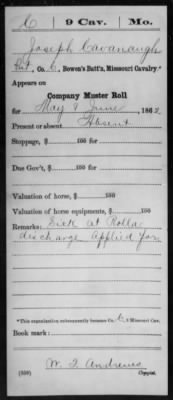 C | 9 Cav. | Mo.
Joseph Cavanaugh
Pvt, Co. C, Bowen's Batt'n, Missouri Cavalry.*
Appears on
Company Muster Roll
for May & June, 1862
Present or absent Absent
Stoppage, $ 100 for
Due Gov't, $ 100 for
Valuation of horse, $ 100
Valuation of horse equipments, $ 100
Remarks: Sick at Rolla
discharge applied for
*This organization subsequently became Co. 9 Missouri Cav.
Book mark:
W. T. Andrews
(359) Copyist.